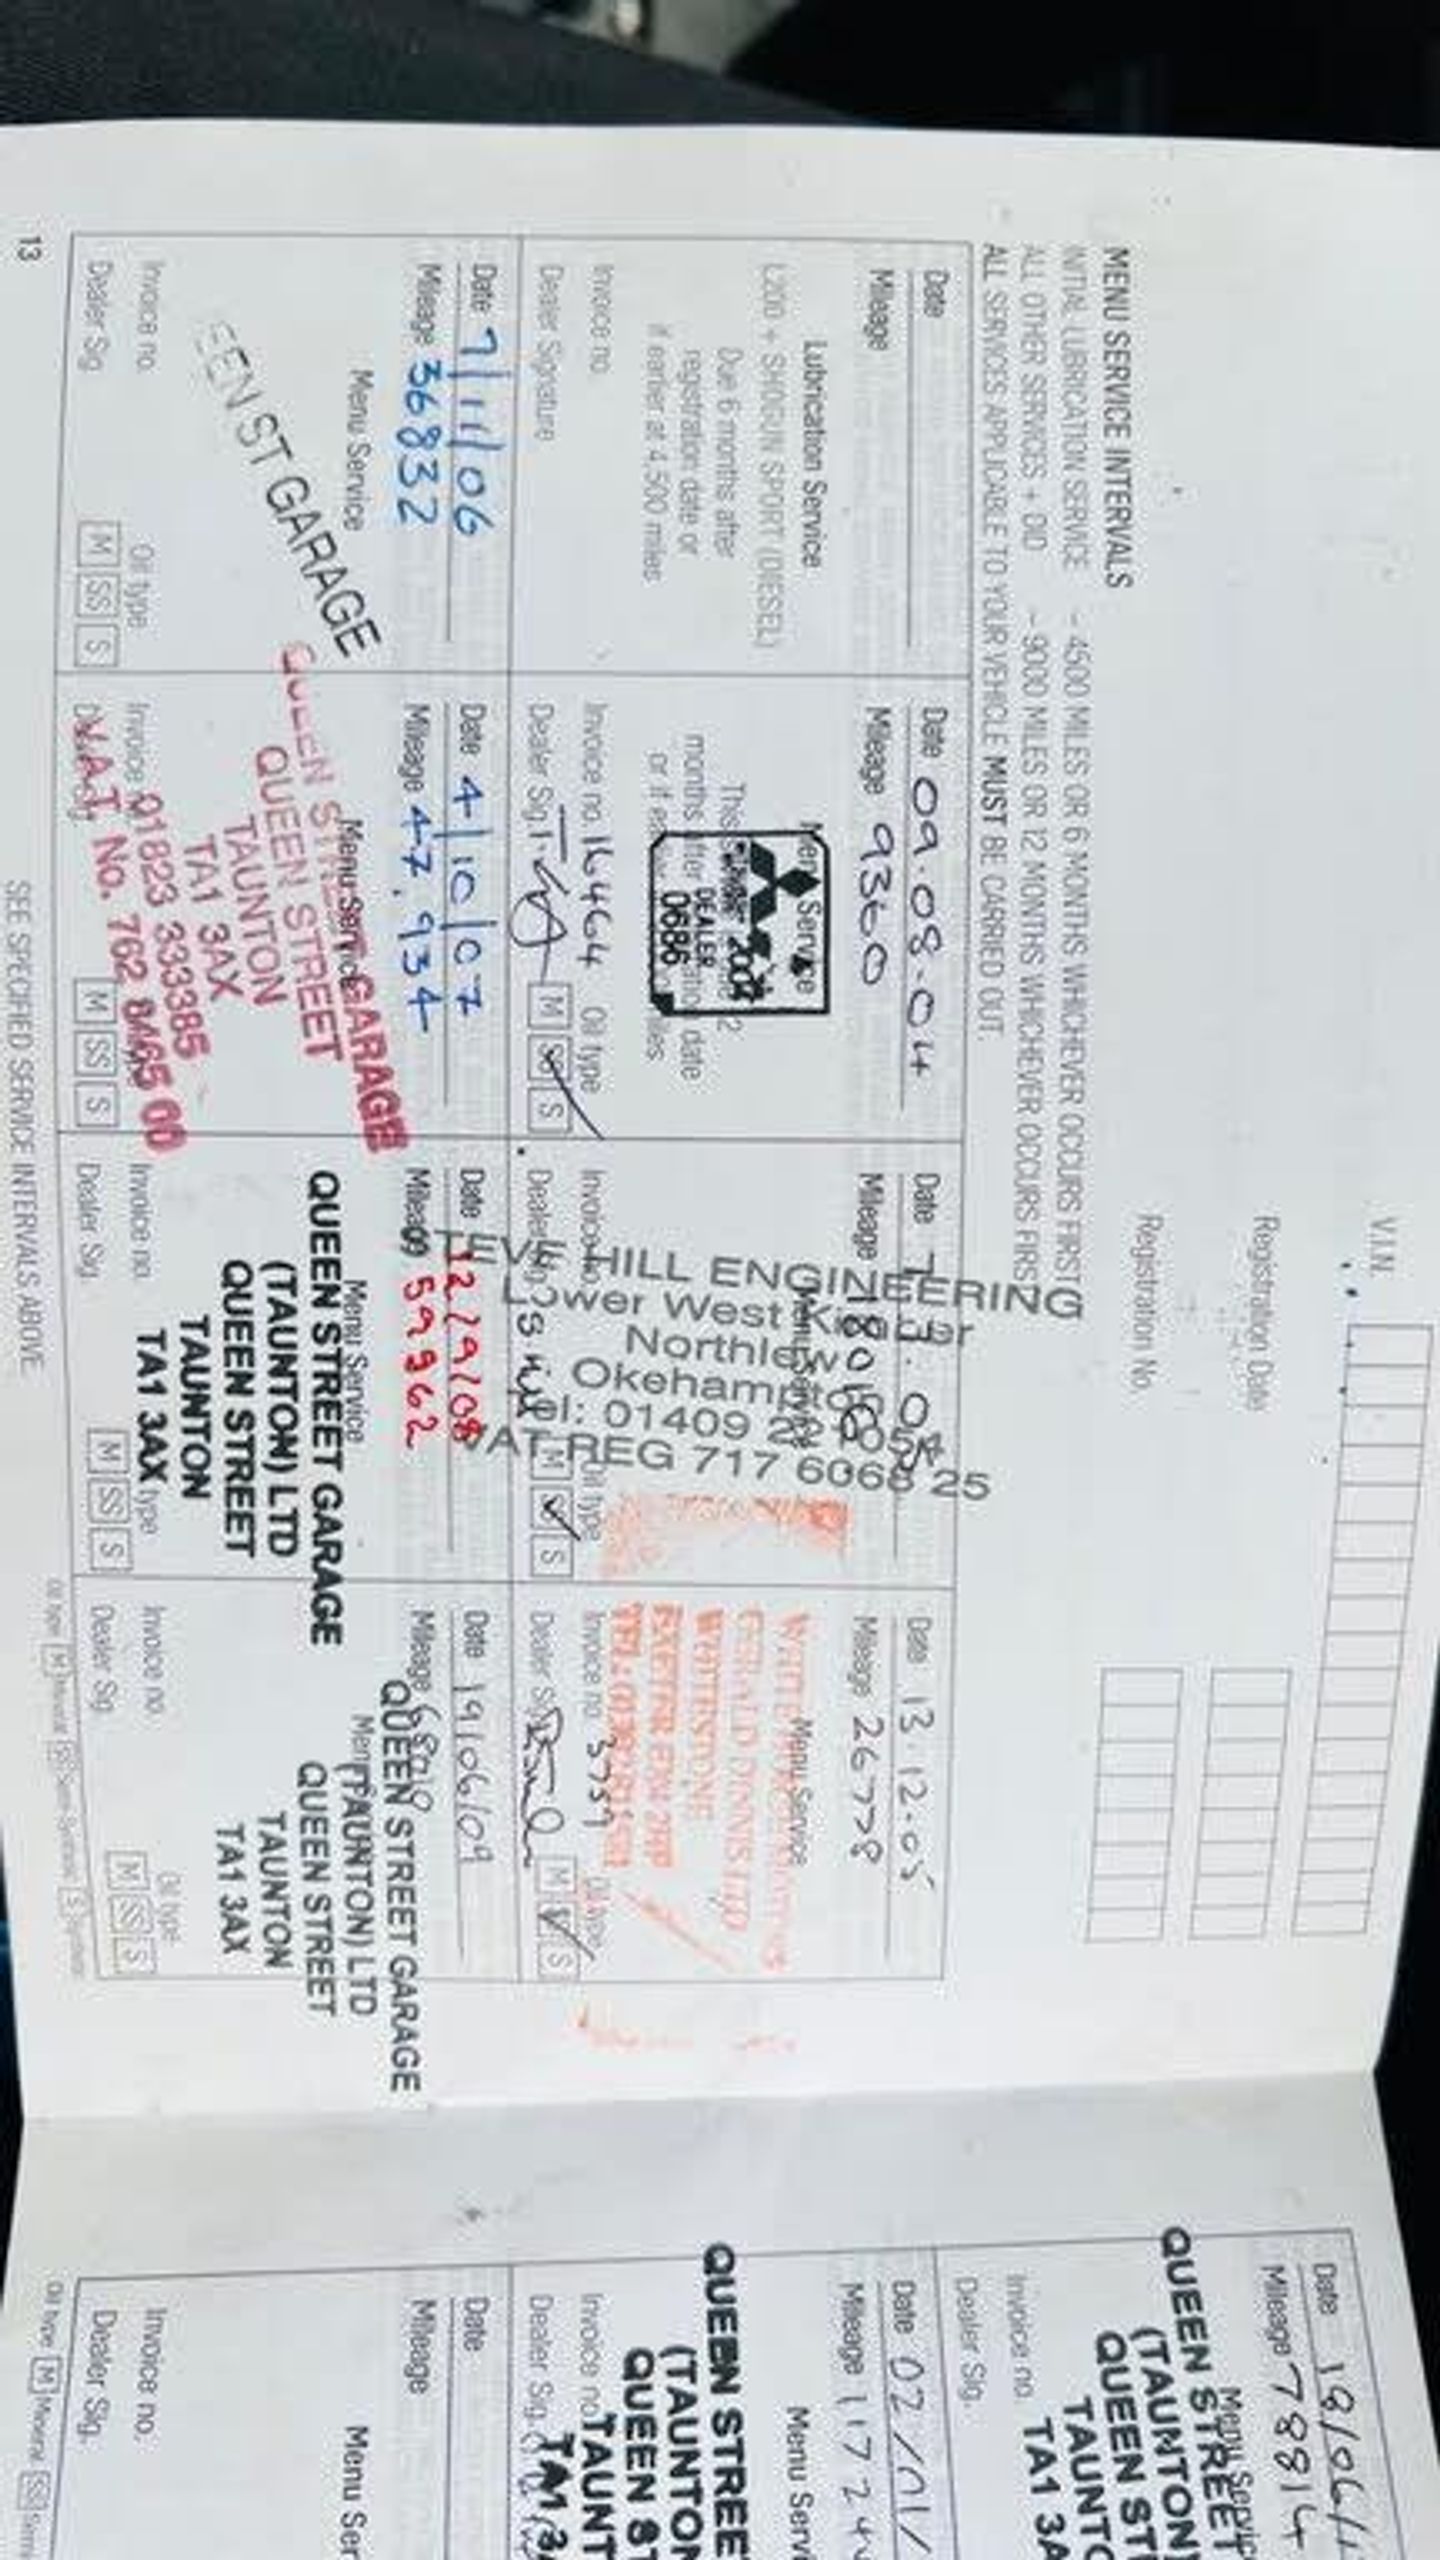 V.I.N.
Registration Date
Registration No.
MENU SERVICE INTERVALS
INITIAL LUBRICATION SERVICE - 4500 MILES OR 6 MONTHS WHICHEVER OCCURS FIRST
ALL OTHER SERVICES + DID - 9000 MILES OR 12 MONTHS WHICHEVER OCCURS FIRST
ALL SERVICES APPLICABLE TO YOUR VEHICLE MUST BE CARRIED OUT.
Date
Mileage
Lubrication Service
L200 + SHOGUN SPORT (DIESEL)
Due 6 months after
registration date or
if earlier at 4,500 miles
Invoice no.
Dealer Signature
Date 09.08.04
Mileage 9360
Menu Service
months after
date
DEALER
0686
Invoice no. 16464 Oil type
Dealer Sig.
M SS S
Date
Mileage
HILL ENGINEERING
Lower West
Okehampton
Tel: 01409
VAT REG 717 6068 25
Oil type
M S
Date 13.12.05
Mileage 26778
Menu Service
GERALD DINNIS LTD
WHITESTONE
EXETER EX4 2HP
Invoice no. 3759 Oil type
Dealer Sig.
M S
Date 7/11/06
Mileage 36832
Menu Service
EEN ST GARAGE
Invoice no. Oil type
Dealer Sig. M SS S
Date 4/10/07
Mileage 47,934
Menu Service
QUEEN STREET GARAGE
QUEEN STREET
TAUNTON
TA1 3AX
01823 333385
V.A.T. No. 762 8465 00
Invoice
M SS S
Date 12/9/08
Mileage 59362
Menu Service
QUEEN STREET GARAGE
(TAUNTON) LTD
QUEEN STREET
TAUNTON
TA1 3AX
Invoice no. type
Dealer Sig. M SS S
Date 19/06/09
Mileage
QUEEN STREET GARAGE
(TAUNTON) LTD
QUEEN STREET
TAUNTON
TA1 3AX
Invoice no. Oil type
Dealer Sig. M SS S
Oil type M Mineral SS Semi-Synthetic S Synthetic
13
SEE SPECIFIED SERVICE INTERVALS ABOVE
Date 18/06/1
Mileage 78814
Menu Service
QUEEN STREET
(TAUNTON)
QUEEN ST
TAUNTO
TA1 3A
Invoice no.
Dealer Sig.
Date 02/01/
Mileage 11724
Menu Servi
QUEEN STREE
(TAUNTON
QUEEN S
TAUNT
TA1 3
Invoice no.
Dealer Sig.
Date
Mileage
Menu Ser
Invoice no.
Dealer Sig.
Oil type M Mineral SS Semi